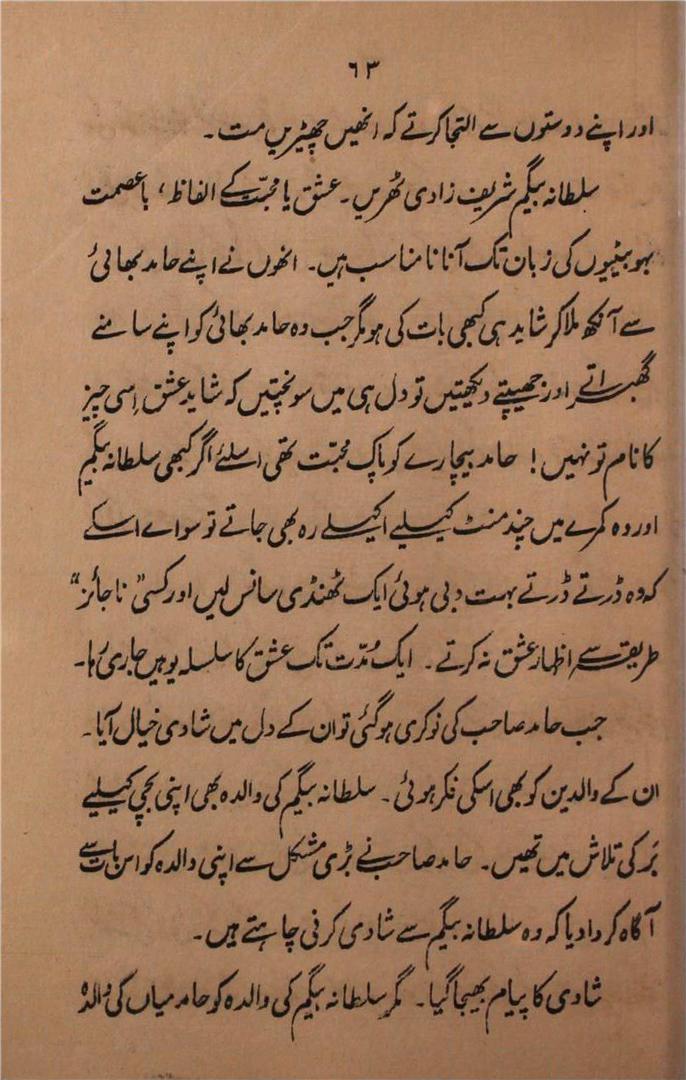 ٦٣
اور اپنے دوستوں سے التجا کرتے کہ انھیں چھیڑیں مت۔
سلطانہ بیگم شریف زادی ٹھریں۔ عشق یا محبّت کے الفاظ، با عصمت
بہو بیٹیوں کی زبان تک آنا نا مناسب ہیں۔ انھوں نے اپنے حامد بھائی
سے آنکھ ملا کر شاید ہی کبھی بات کی ہو مگر جب وہ حامد بھائی کو اپنے سامنے
گھبراتے اور جھیپتے دیکھتیں تو دل ہی میں سونچتیں کہ شاید عشق اِسی چیز
کا نام تو نہیں! حامد بیچارے کو پاک محبّت تھی اسلئے اگر کبھی سلطانہ بیگم
اور وہ کمرے میں چند منٹ کیلیے اکیلے رہ بھی جاتے تو سواے اسکے
کہ وہ ڈرتے ڈرتے بہت دبی ہوئی ایک ٹھنڈی سانس لیں اور کسی ”ناجائز“
طریقہ سے اظہار عشق نہ کرتے۔ ایک مُدّت تک عشق کا سلسلہ یوہیں جاری رہا۔
جب حامد صاحب کی نوکری ہو گئی تو ان کے دل میں شادی خیال آیا۔
ان کے والدین کو بھی اسکی فکر ہوئی۔ سلطانہ بیگم کی والدہ بھی اپنی بچی کیلیے
بَر کی تلاش میں تھیں۔ حامد صاحب نے بڑی مشکل سے اپنی والدہ کو اس بات سے
آگاہ کروا دیا کہ وہ سلطانہ بیگم سے شادی کرنی چاہتے ہیں۔
شادی کا پیام بھیجا گیا۔ مگر سلطانہ بیگم کی والدہ کو حامد میاں کی والدہ